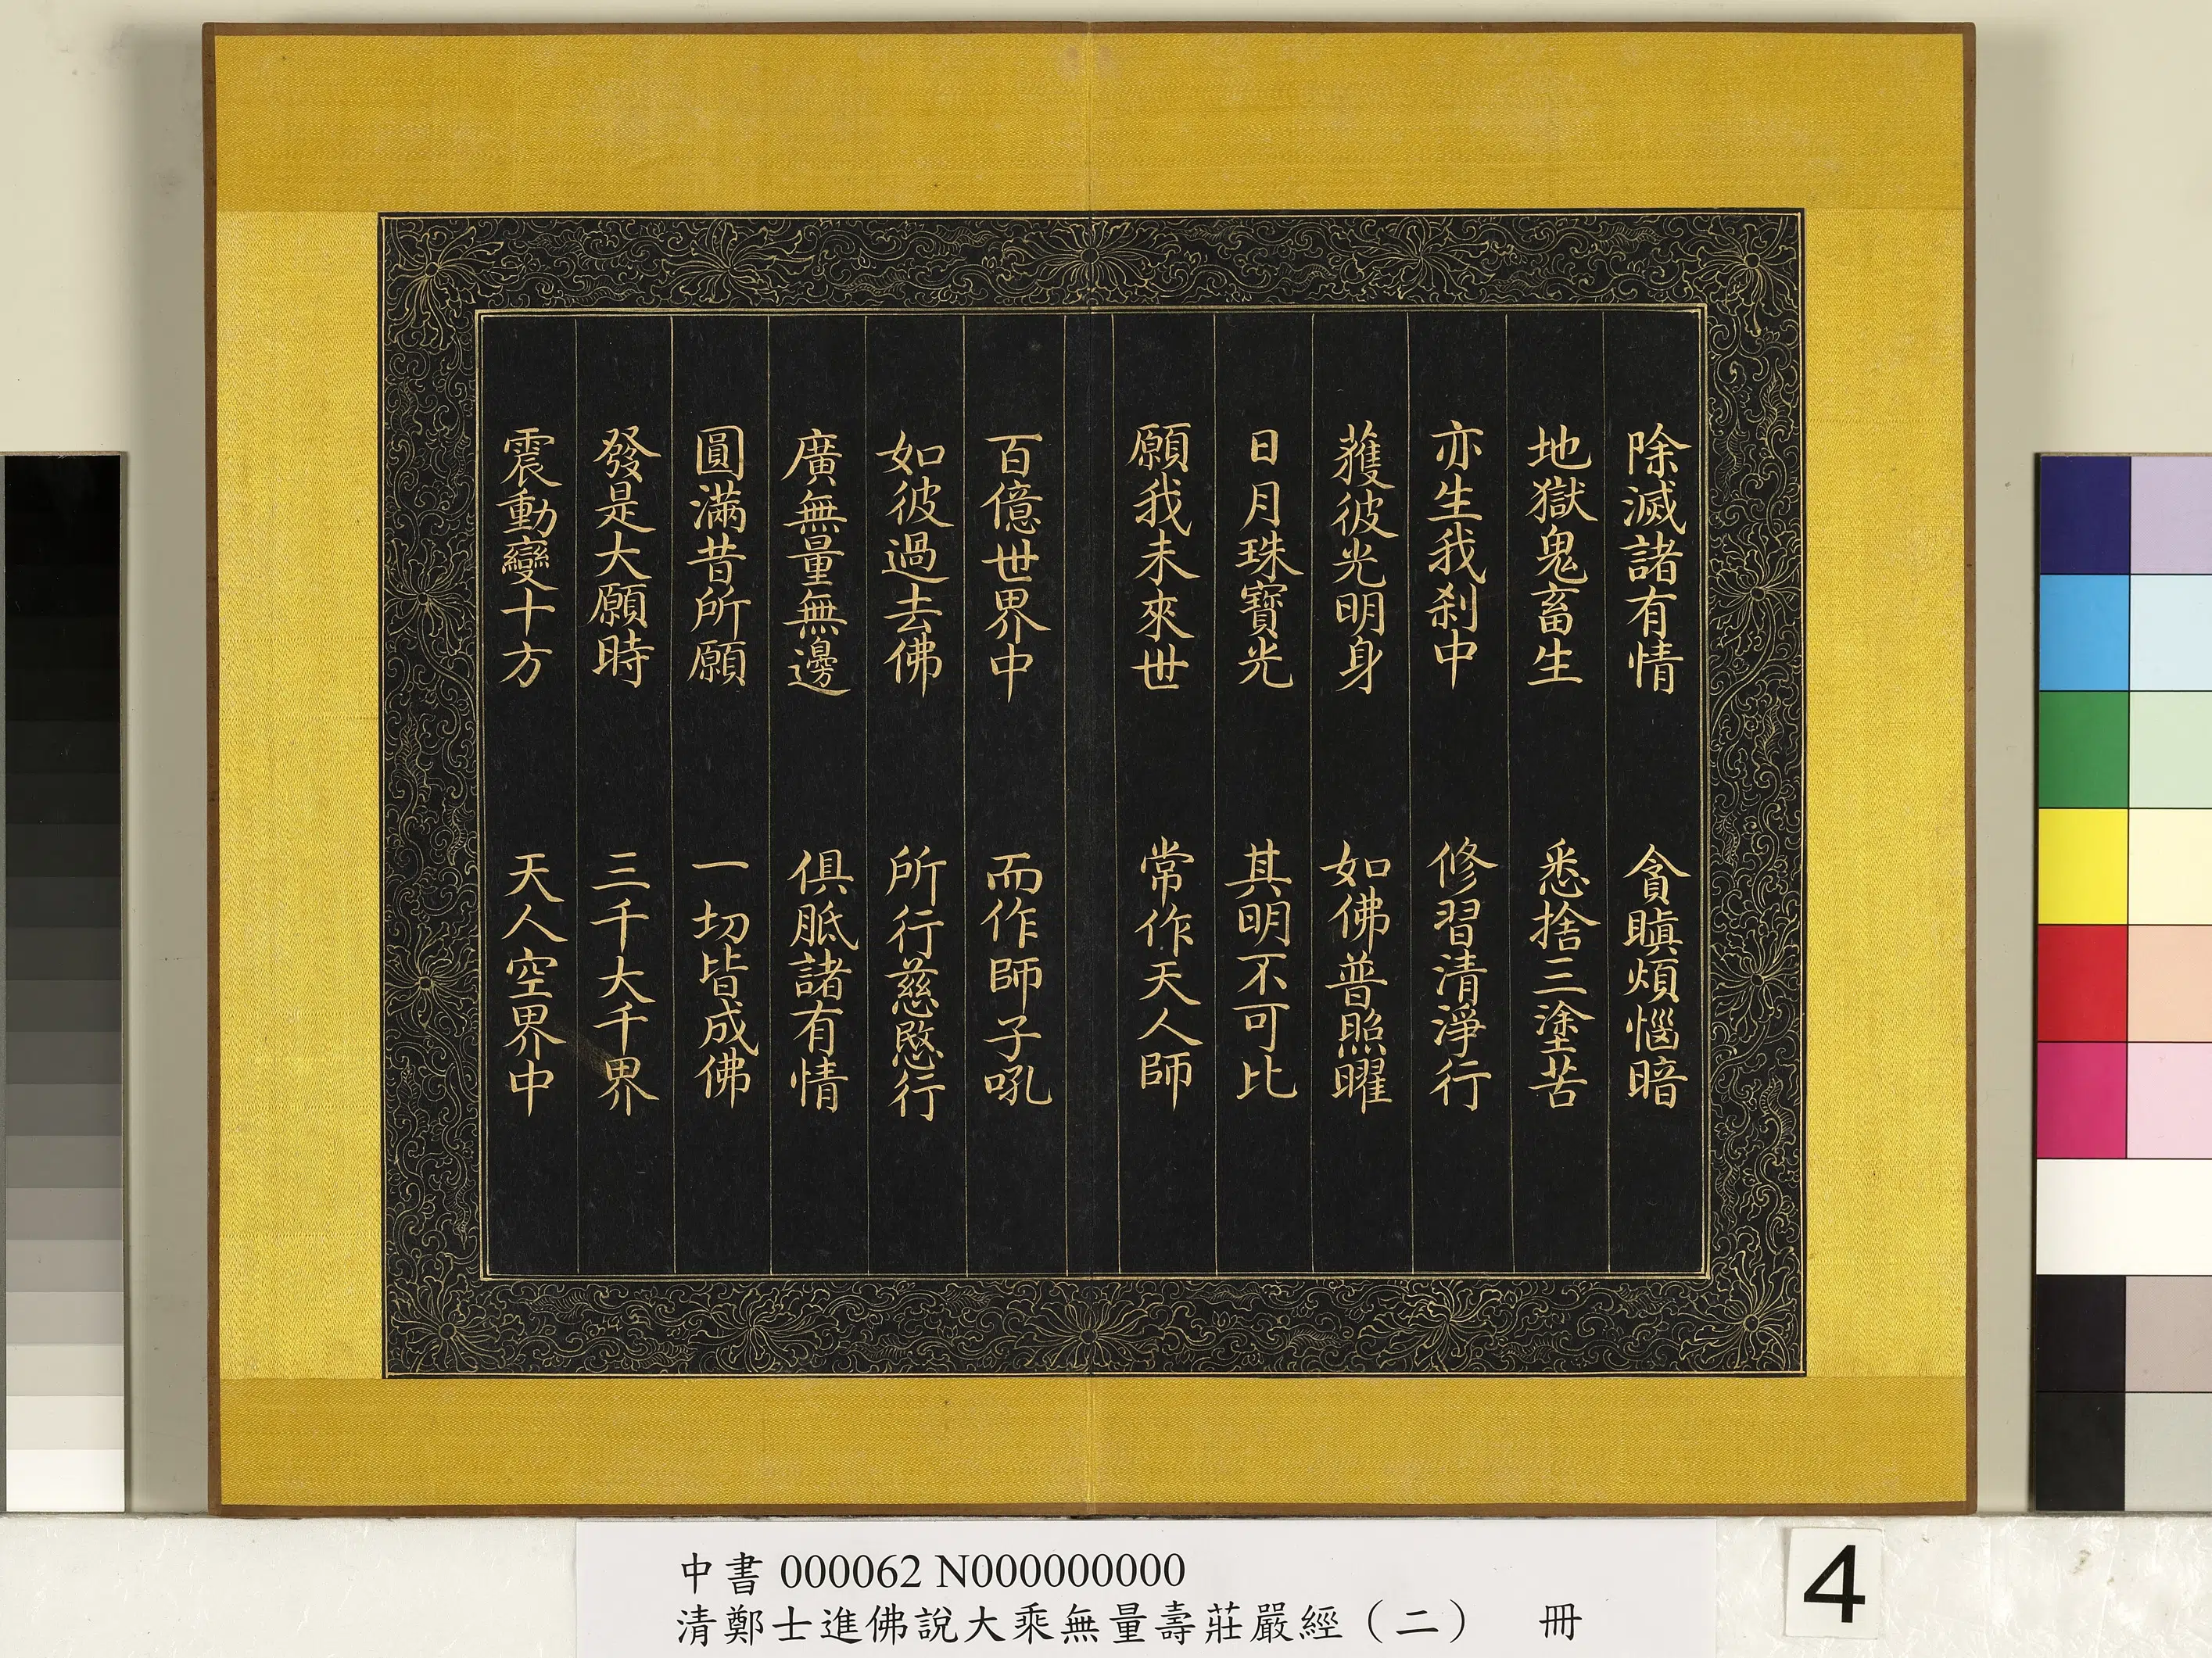 除滅諸有情　貪瞋煩惱暗
地獄鬼畜生　悉捨三塗苦
亦生我剎中　修習清淨行
獲彼光明身　如佛普照曜
日月珠寶光　其明不可比
願我未來世　常作天人師
百億世界中　而作師子吼
如彼過去佛　所行慈愍行
廣無量無邊　俱胝諸有情
圓滿昔所願　一切皆成佛
發是大願時　三千大千界
震動變十方　天人空界中
中書 000062 N000000000
清鄭士進佛說大乘無量壽莊嚴經（二）　冊
4